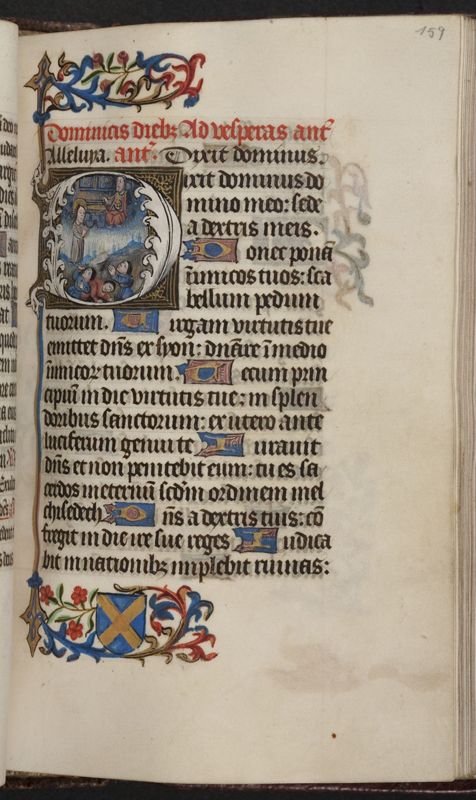 159
Dominicis diebꝫ Ad vesperas ant̄
Alleluya. ant̄. Dixit dominus.
Dixit dominus do
mino meo: sede
a dextris meis.
Donec ponā
inimicos tuos: sca
bellum pedum
tuorum. Uirgam virtutis tue
emittet dn̄s ex syon: dn̄are ī medio
inimicoꝝ tuorum. Tecum prin
cipiū in die virtutis tue: in splen
doribus sanctorum: ex utero ante
luciferum genui te Iurauit
dn̄s et non penitebit eum: tu es sa
cerdos in eternū scd̄m ordinem mel
chisedech Dn̄s a dextris tuis: cō
fregit in die ire sue reges Iudica
bit in nationibꝫ implebit ruinas: